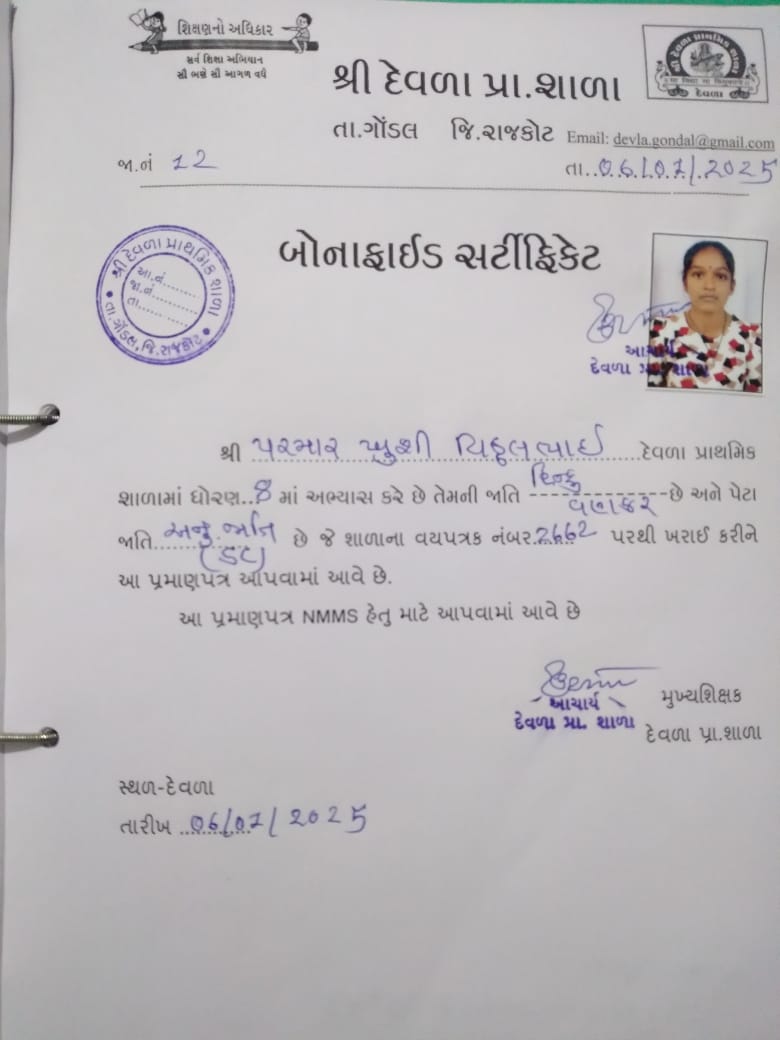 શિક્ષણનો અધિકાર
સર્વ શિક્ષા અભિયાન
સૌ ભણે સૌ આગળ વધે
શ્રી દેવળા પ્રાથમિક શાળા
દેવળા
શ્રી દેવળા પ્રા.શાળા
તા.ગોંડલ જિ.રાજકોટ Email: devla.gondal@gmail.com
જા.નં 12 તા..06/01/2025
બોનાફાઈડ સર્ટીફિકેટ
શ્રી દેવળા પ્રાથમિક શાળા
આ.નં........
જા.નં........
તા........
તા.ગોંડલ, જિ.રાજકોટ
આચાર્ય
દેવળા પ્રા. શાળા
શ્રી પરમાર ખુશી વિઠ્ઠલભાઈ દેવળા પ્રાથમિક
શાળામાં ધોરણ..8 માં અભ્યાસ કરે છે તેમની જાતિ હિન્દુ વણકર છે અને પેટા
જાતિ અનુ. જાતિ (SC) છે જે શાળાના વયપત્રક નંબર 2662 પરથી ખરાઈ કરીને
આ પ્રમાણપત્ર આપવામાં આવે છે.
આ પ્રમાણપત્ર NMMS હેતુ માટે આપવામાં આવે છે
આચાર્ય
દેવળા પ્રા. શાળા
મુખ્યશિક્ષક
દેવળા પ્રા.શાળા
સ્થળ-દેવળા
તારીખ 06/01/2025